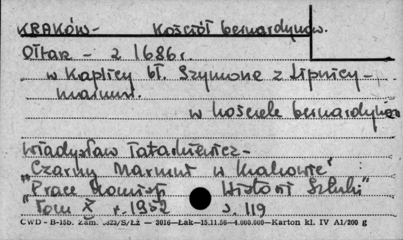 KRAKÓW- Kościół bernardynów.
Ołtarz - z 1686 r.
w Kaplicy bł. Szymona z Lipnicy-
marmur.
w kościele bernardynów
Władysław Tatarkiewicz-
"Czarny Marmur w Krakowie"
"Prace Komisji Historii Sztuki"
"Tom X r. 1952 s. 119
CWD - B-15b. Zam. S/Lż - 2016-Łak-15.11.56-4.000.000-Karton kl. IV A1/200 g